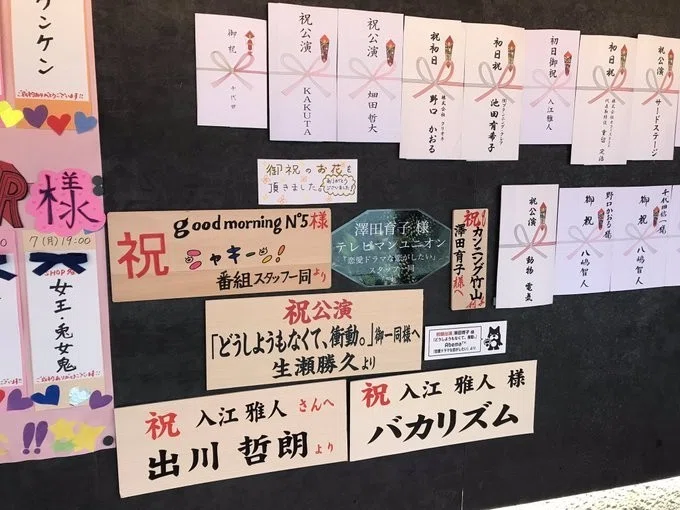 ケンケン
様
7(月)19:00
女王・兎女鬼
御祝
千代田
祝公演
KAKUTA
祝公演
畑田哲大
祝初日
野口かおる
初日祝
池田有希子
初日御祝
入江雅人
御祝
祝公演
サードステージ
御祝のお花を
頂きました。
ありがとうございました!
good morning Nº5様
祝
ニャキーン!
番組スタッフ一同より
澤田育子 様
テレビマンユニオン
「恋愛ドラマな恋がしたい」
スタッフ一同
祝 カンニング竹山より
澤田育子様へ
祝公演
動物電気
御祝
八嶋智人
野口かおる様
御祝
八嶋智人
祝公演
「どうしようもなくて、衝動。」御一同様へ
生瀬勝久より
澤田育子様
「どうしようもなくて、衝動。」
祝 入江 雅人 さんへ
出川 哲朗 より
祝 入江 雅人 様
バカリズム